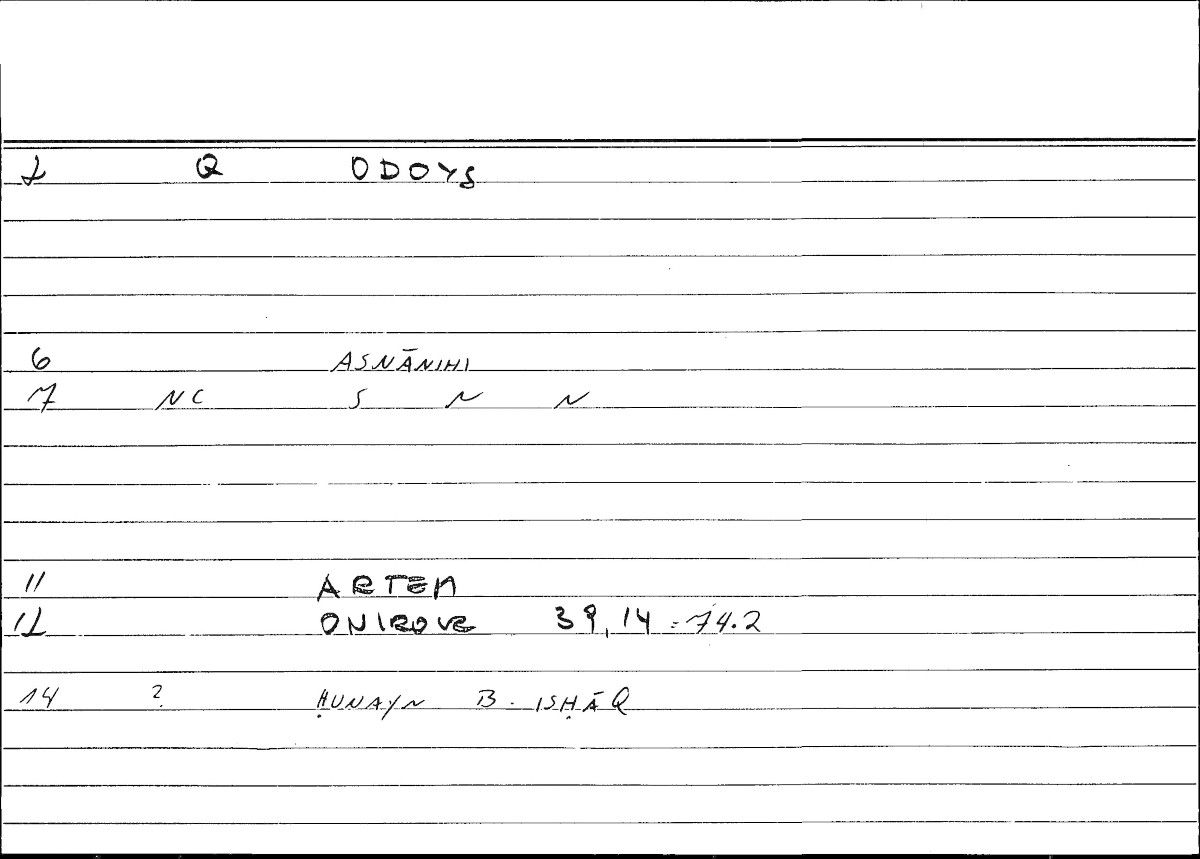 2 Q ODOYS
6 ASNĀNIHI
7 NC S N N
11 ARTEM
12 ONIROCR 39,14 = 74.2
14 ? ḤUNAYN B. ISḤĀQ